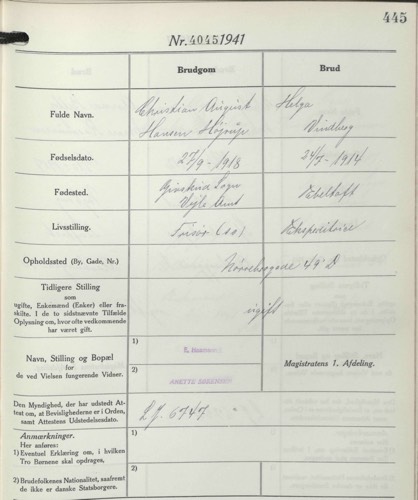 445
Nr. 40451941
Brudgom Brud
Fulde Navn. Christian August Helga
Hansen Højrup Vindberg
Fødselsdato. 27/9 - 1918 24/7 - 1914
Fødested. Givskud Sogn Ebeltoft
Vejle Amt
Livsstilling. Frisør (sv) Ekspeditrice
Opholdssted (By, Gade, Nr.) Nørrebrogade 49 D
Tidligere Stilling
som
ugifte, Enkemænd (Enker) eller fra-
skilte. I de to sidstnævnte Tilfælde
Oplysning om, hvor ofte vedkommende
har været gift.
ugift
Navn, Stilling og Bopæl
for
de ved Vielsen fungerende Vidner.
1)
2)
Magistratens 1. Afdeling.
Den Myndighed, der har udstedt At-
test om, at Bevislighederne er i Orden,
samt Attestens Udstedelsesdato.
6747
Anmærkninger.
Her anføres:
1) Eventuel Erklæring om, i hvilken
Tro Børnene skal opdrages,
2) Brudefolkenes Nationalitet, saafremt
de ikke er danske Statsborgere.
1) 1)
2) 2)